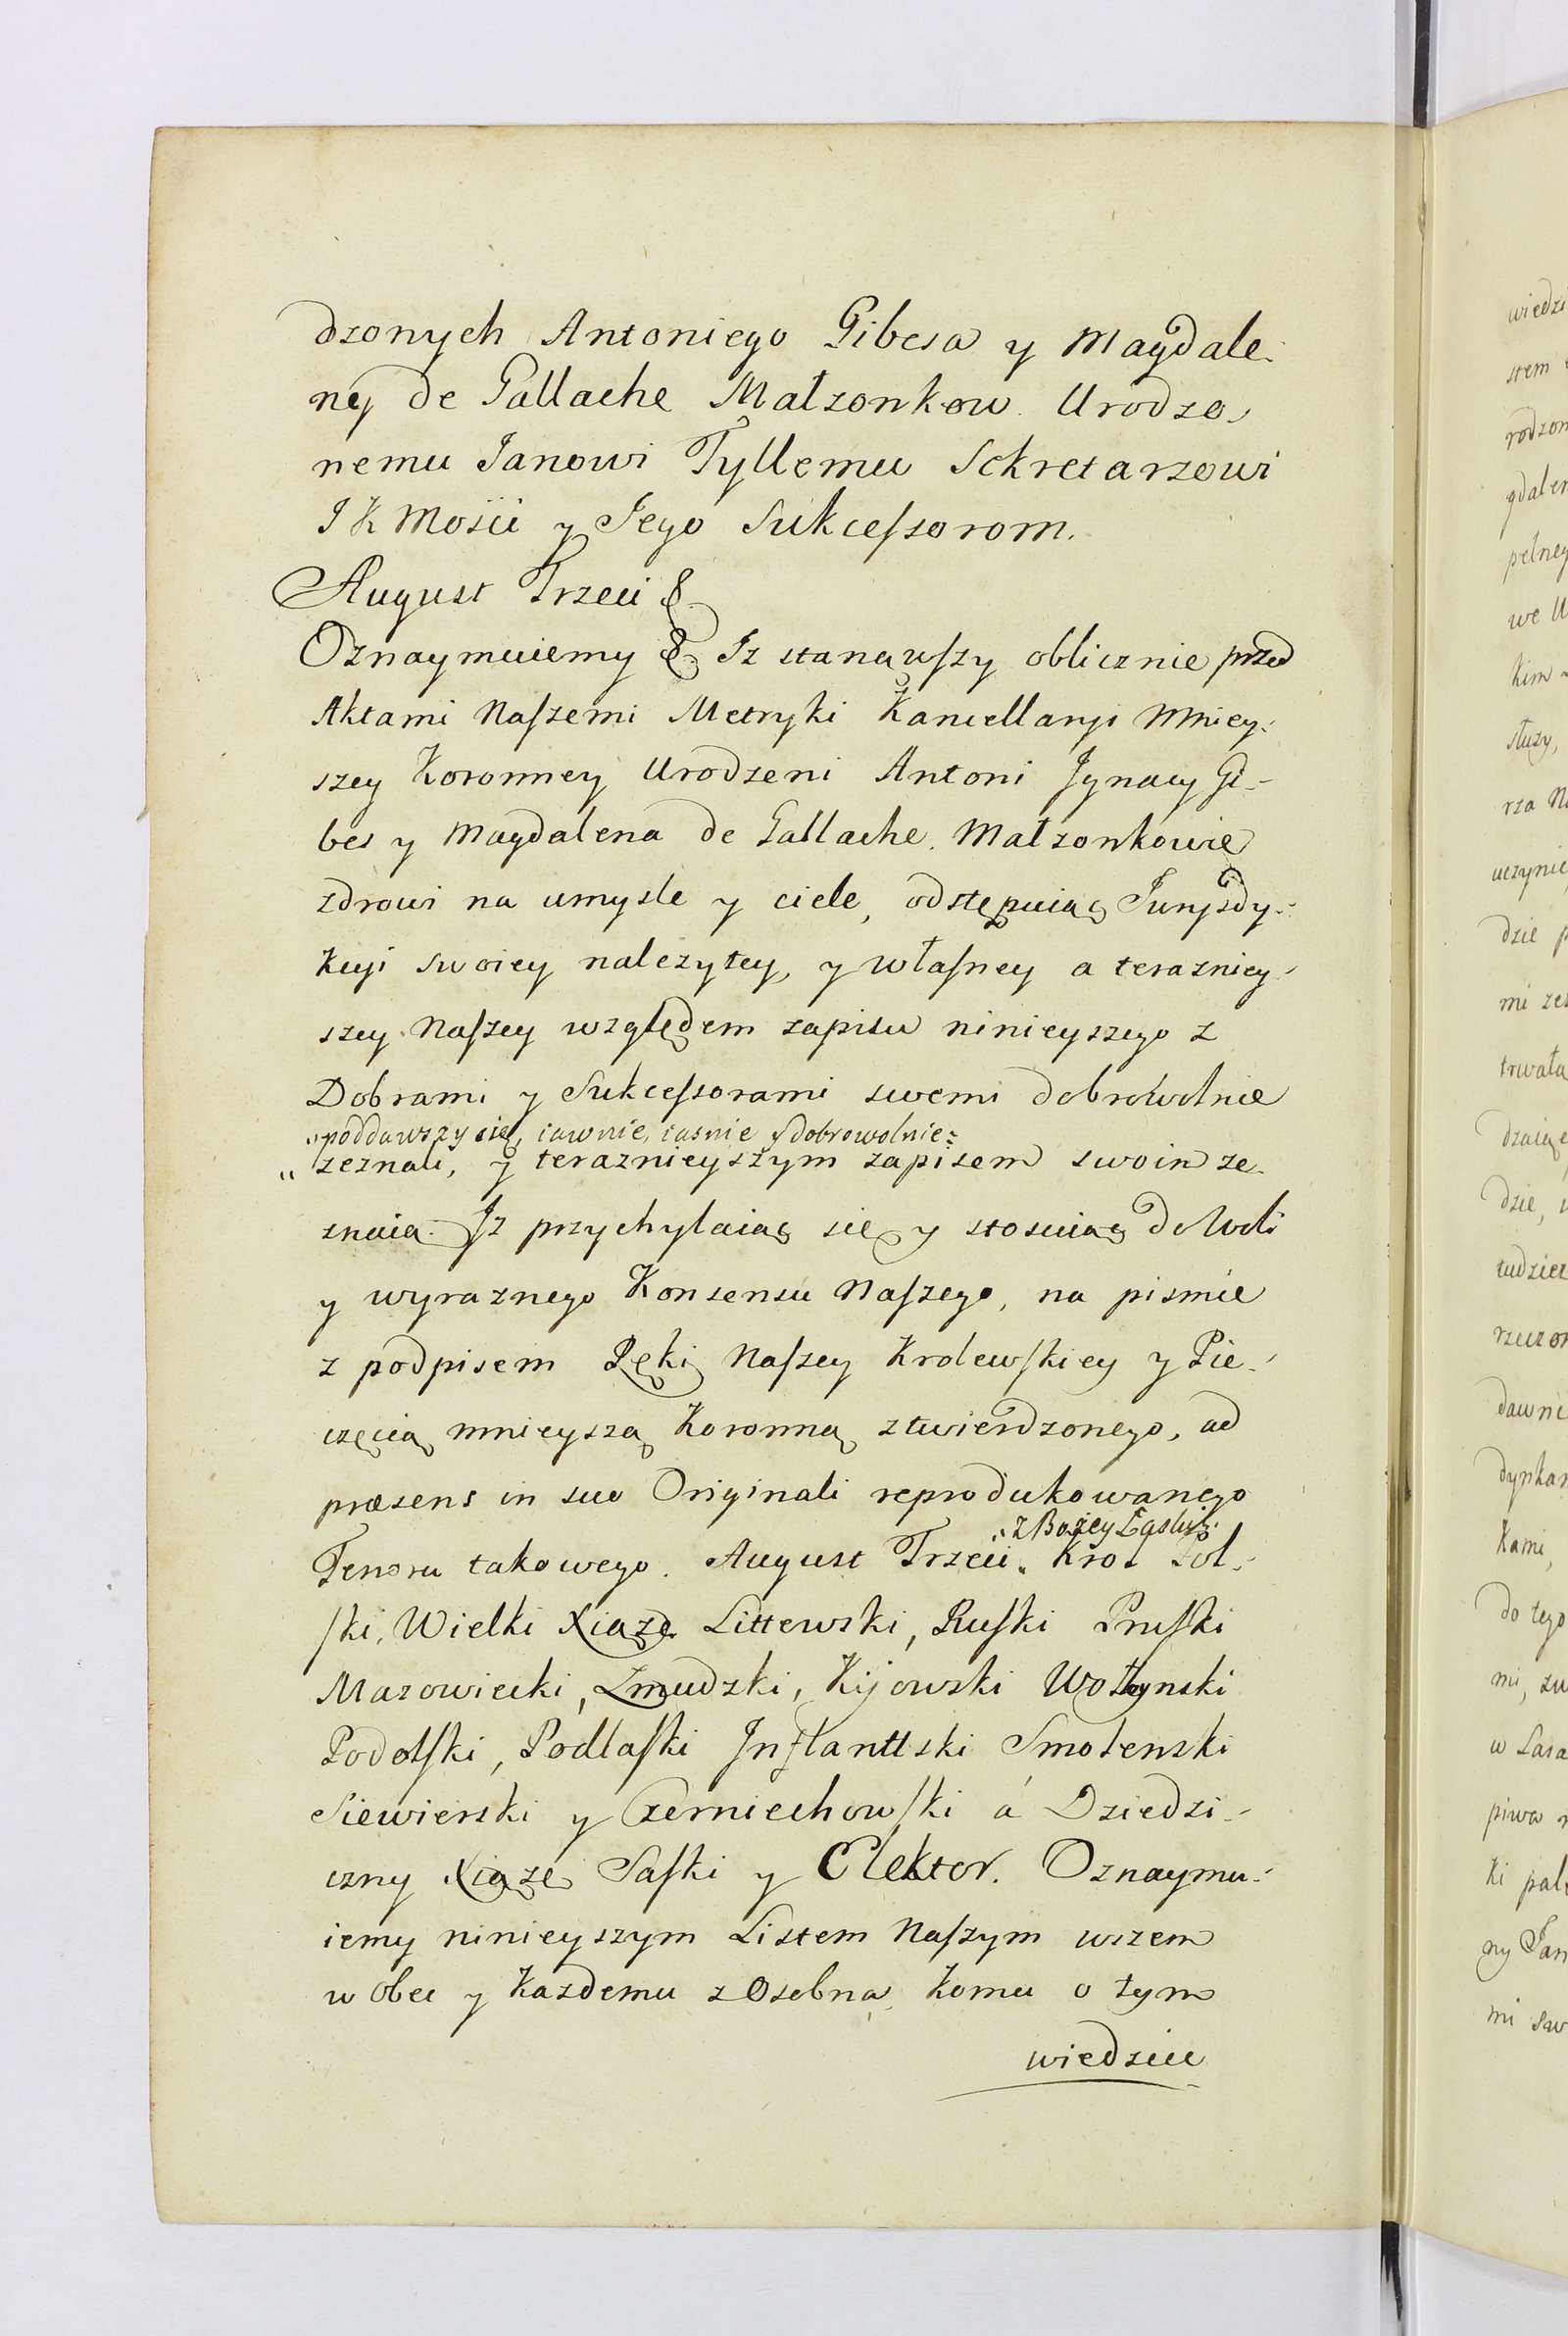 dzonych Antoniego Gibesa y Magdale-
ny de Gallache Małzonkow Urodzo-
nemu Janowi Tyllemu Sekretarzowi
J K Mości y Jego Sukcessorom.
August Trzeci &
Oznaymuiemy &. Iz stanąwszy oblicznie przed
Aktami Naszemi Metryki Kancellaryi Mniey-
szey Koronney Urodzeni Antoni Jgnacy Gi-
bes y Magdalena de Gallache. Małzonkowie
zdrowi na umysle y ciele, odstępuiąc Jurysdy-
kcyi swoiey nalezytey, y własney a terazniey-
szey Naszey względem zapisu ninieyszego z
Dobrami y Sukcessorami swemi dobrowolnie
„poddawszy się, iawnie, iasnie y dobrowolnie:
„zeznali, y teraznieyszym zapisem swoim ze-
znaią. Jz przychylaiąc się y stosuiąc do Woli
y wyraznego Konsensu Naszego, na pismie
z podpisem Ręki Naszey Krolewskiey y Pie-
częcią mnieyszą Koronną ztwierdzonego, ad
præsens in suo Originali reprodukowanego
„z Bożey Łaski
Tenoru takowego. August Trzeci „ Krol Pol-
ski, Wielki Xiąze Littewski, Ruski Pruski
Mazowiecki, Zmudzki, Kijowski Wołynski
Podolski, Podlaski Jnflanttski Smolenski
Siewierski y Czerniechowski á Dziedzi-
czny Xiąze Saski y Elektor. Oznaymu-
iemy ninieyszym Listem Naszym wszem
w obec y Kazdemu z Osebna, komu o tym
wiedziec
wiedzi
stem
rodzon
gdalen
pełney
we U
kim
służy,
rza Na
uczynić
dzie p
mi zes
trwała
dzaiące
dzie,
tudziez
rzeczon
dawne
dynkam
kami,
do tego
mi,
w Lasa
piwa
ki pal
ny Jan
mi sw